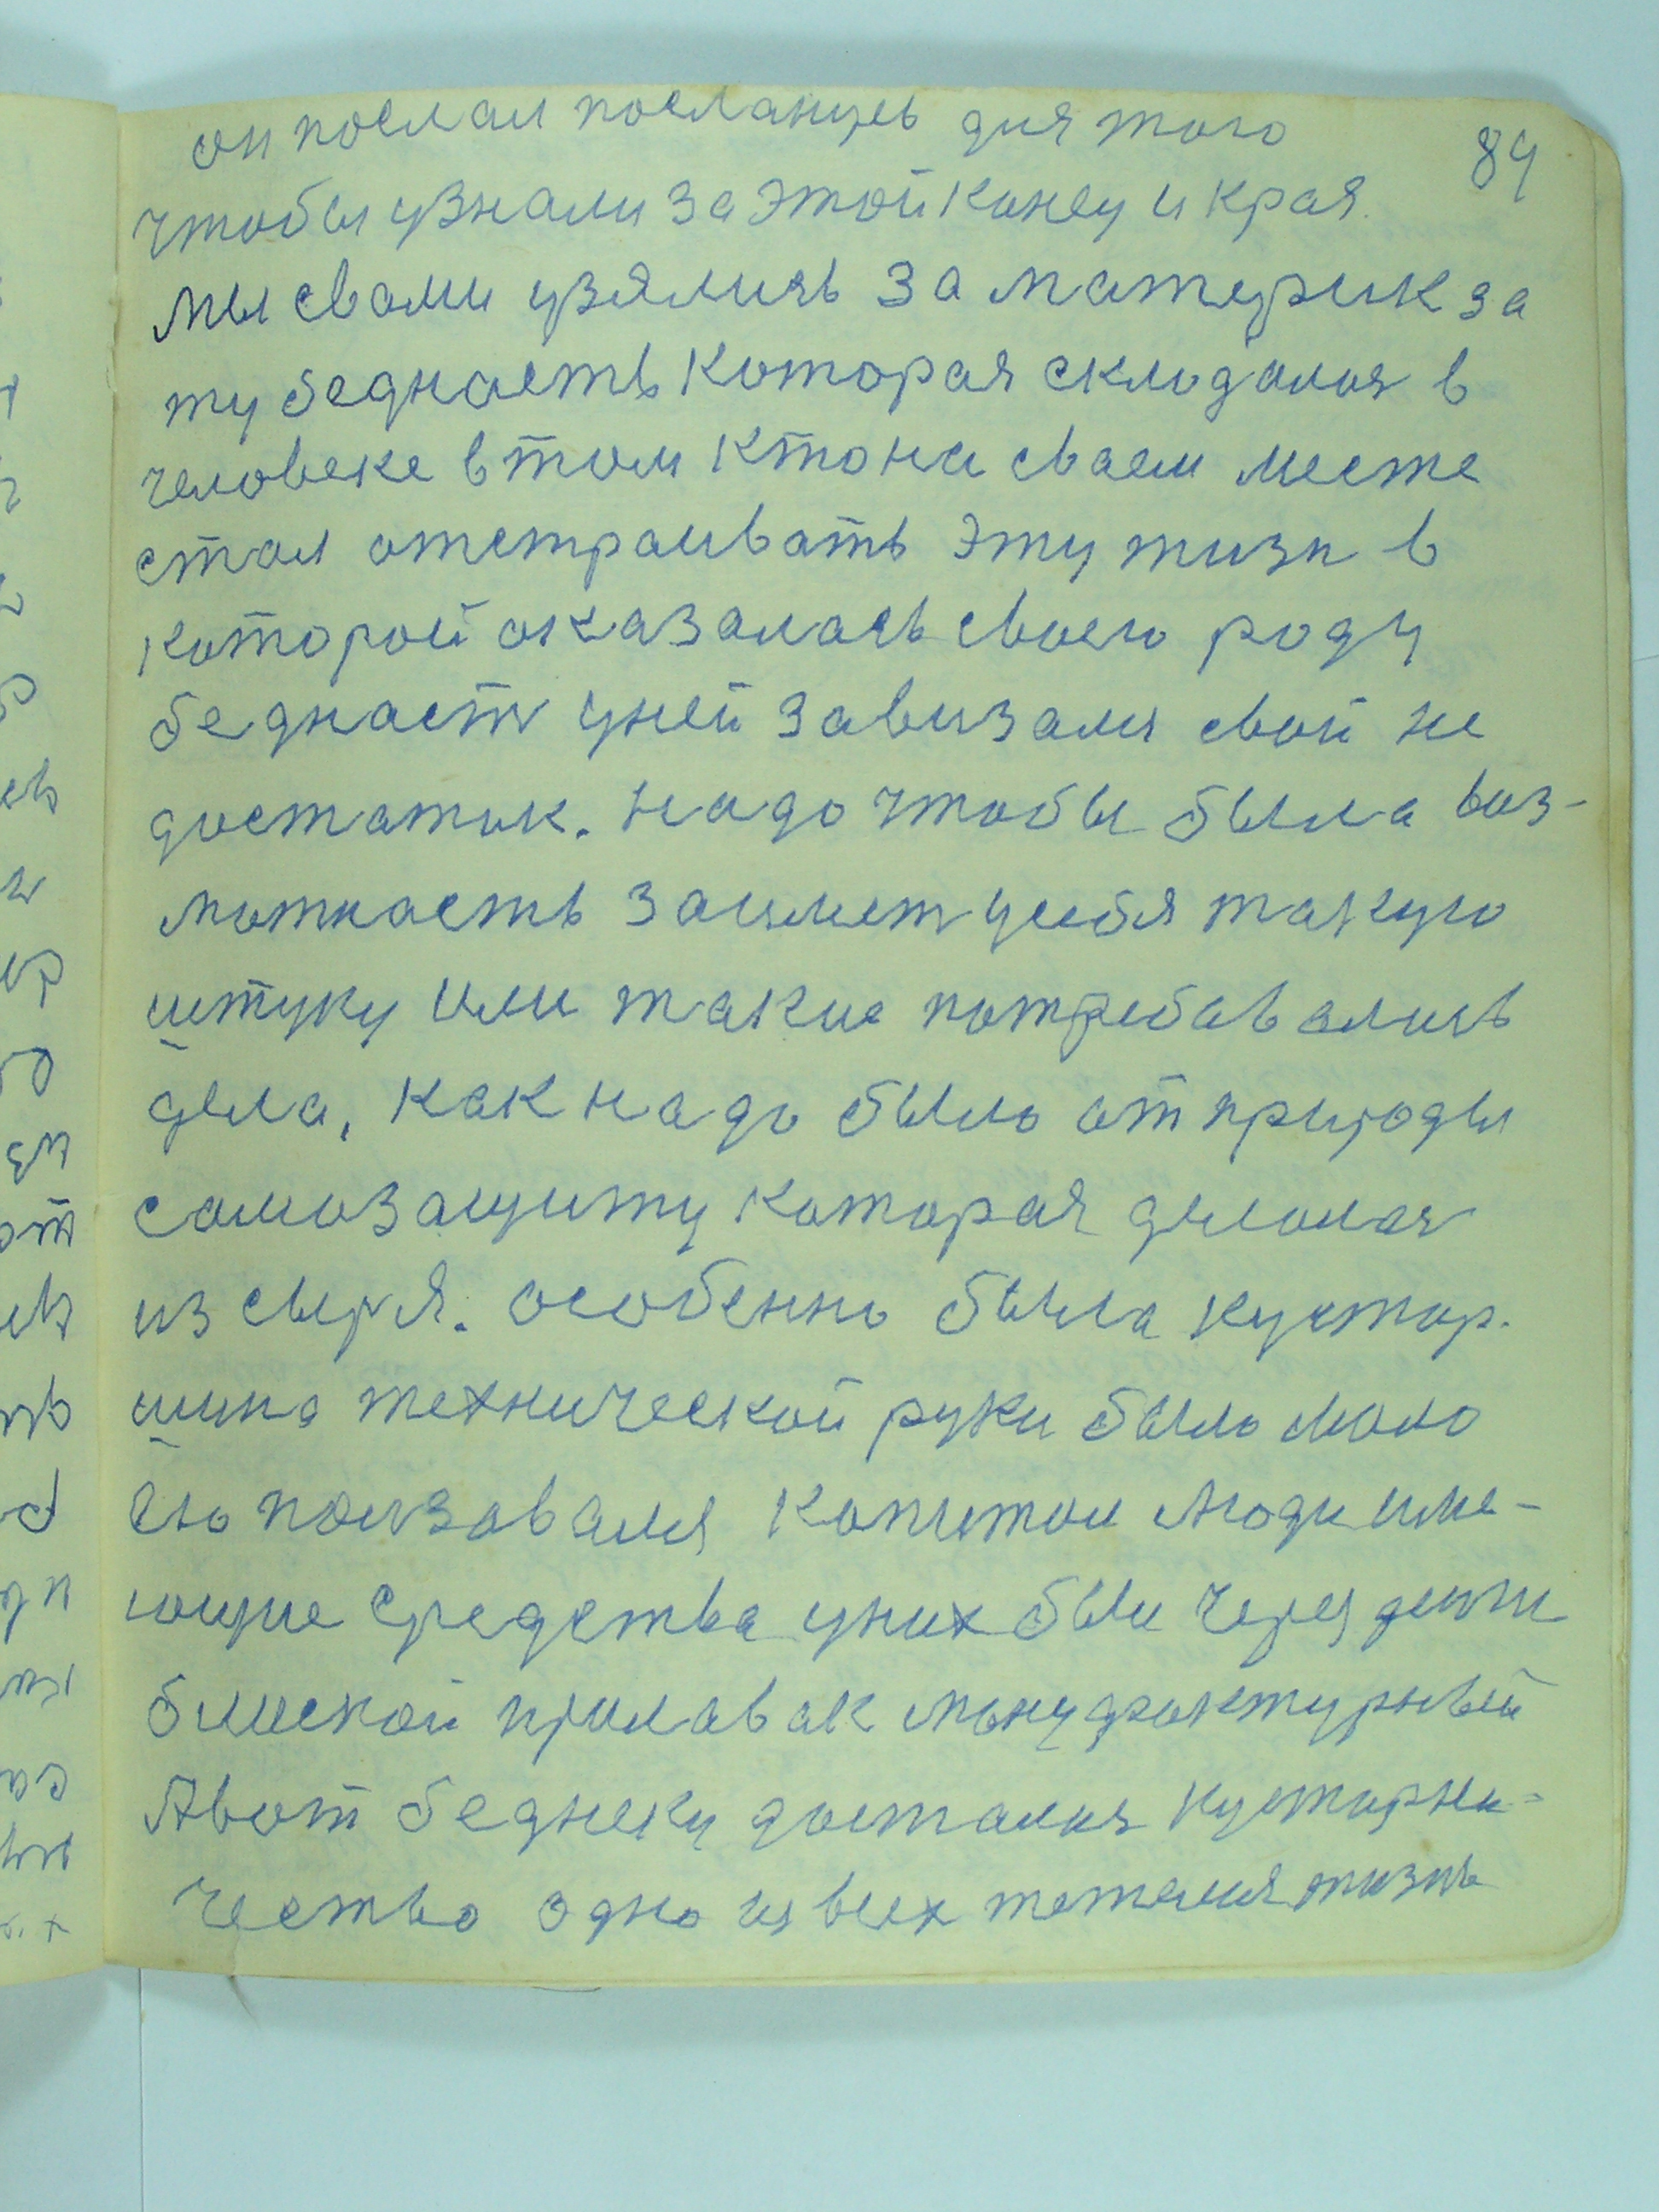 он послал посланцев для того
89
чтобы узнали за этой конец и края.
мы свами узялись за материк за
ту беднасть которая склодалия в
человеке втом ктона сваем месте
стал отстраивать эту жизн в
которой оказалась своего роду
беднаст уней завизали свой не
достаток. надо чтобы была воз-
можнасть займет усебя такую
штуку или такие потребавались
дела, как надо было от природы
самозащиту которая делолая
из сыря. особенно была кустар.
шина технической руки было мало
ею ползавалия капитол люди име-
ющие средства уних был через денги
близкой прилавак мануфактурный
Авот беднеку досталия кустарни-
чество одно из всех тежелия жизнь